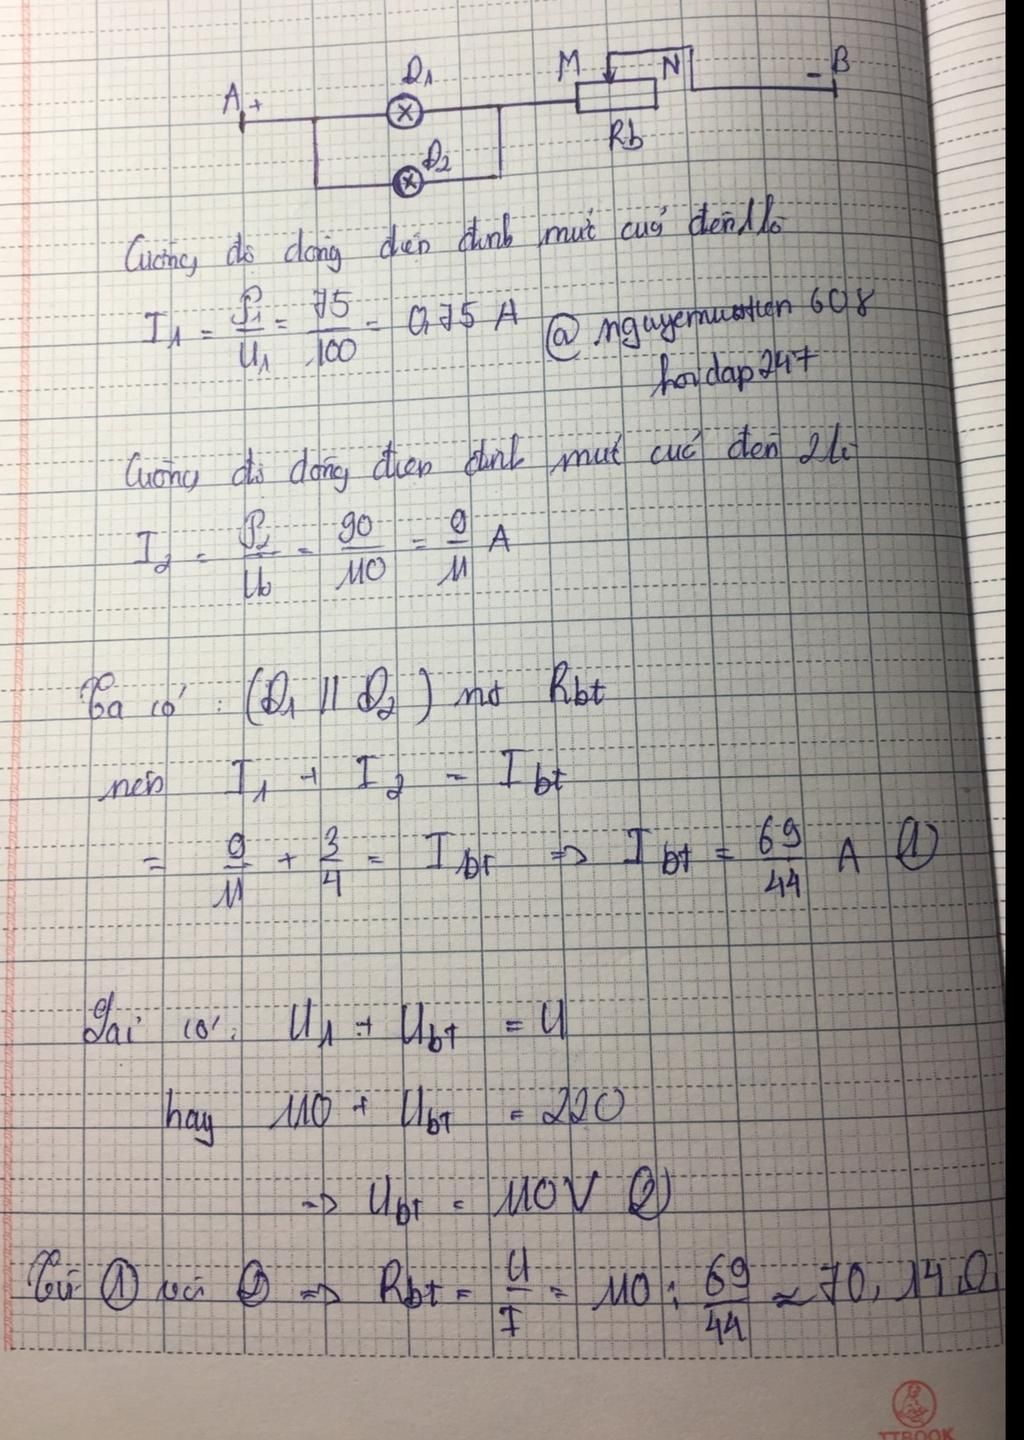 Đ1
A +
M
N
- B
Đ2
Rb
Cường độ dòng điện định mức của đèn 1 là
I1 = P1/U1 = 75/100 = 0,75 A
@ nguyenvantien 608
hoidap247
Cường độ dòng điện định mức của đèn 2 là
I2 = P2/U2 = 90/110 = 9/11 A
Ta có : (Đ1 // Đ2) nt Rbt
nên I1 + I2 = Ibt
= 9/11 + 3/4 = Ibt => Ibt = 69/44 A (1)
Lại có: U1 + Ubt = U
hay 110 + Ubt = 220
=> Ubt = 110V (2)
Từ (1) và (2) => Rbt = U/I = 110 : 69/44 ≈ 70,14 Ω
TTBOOK